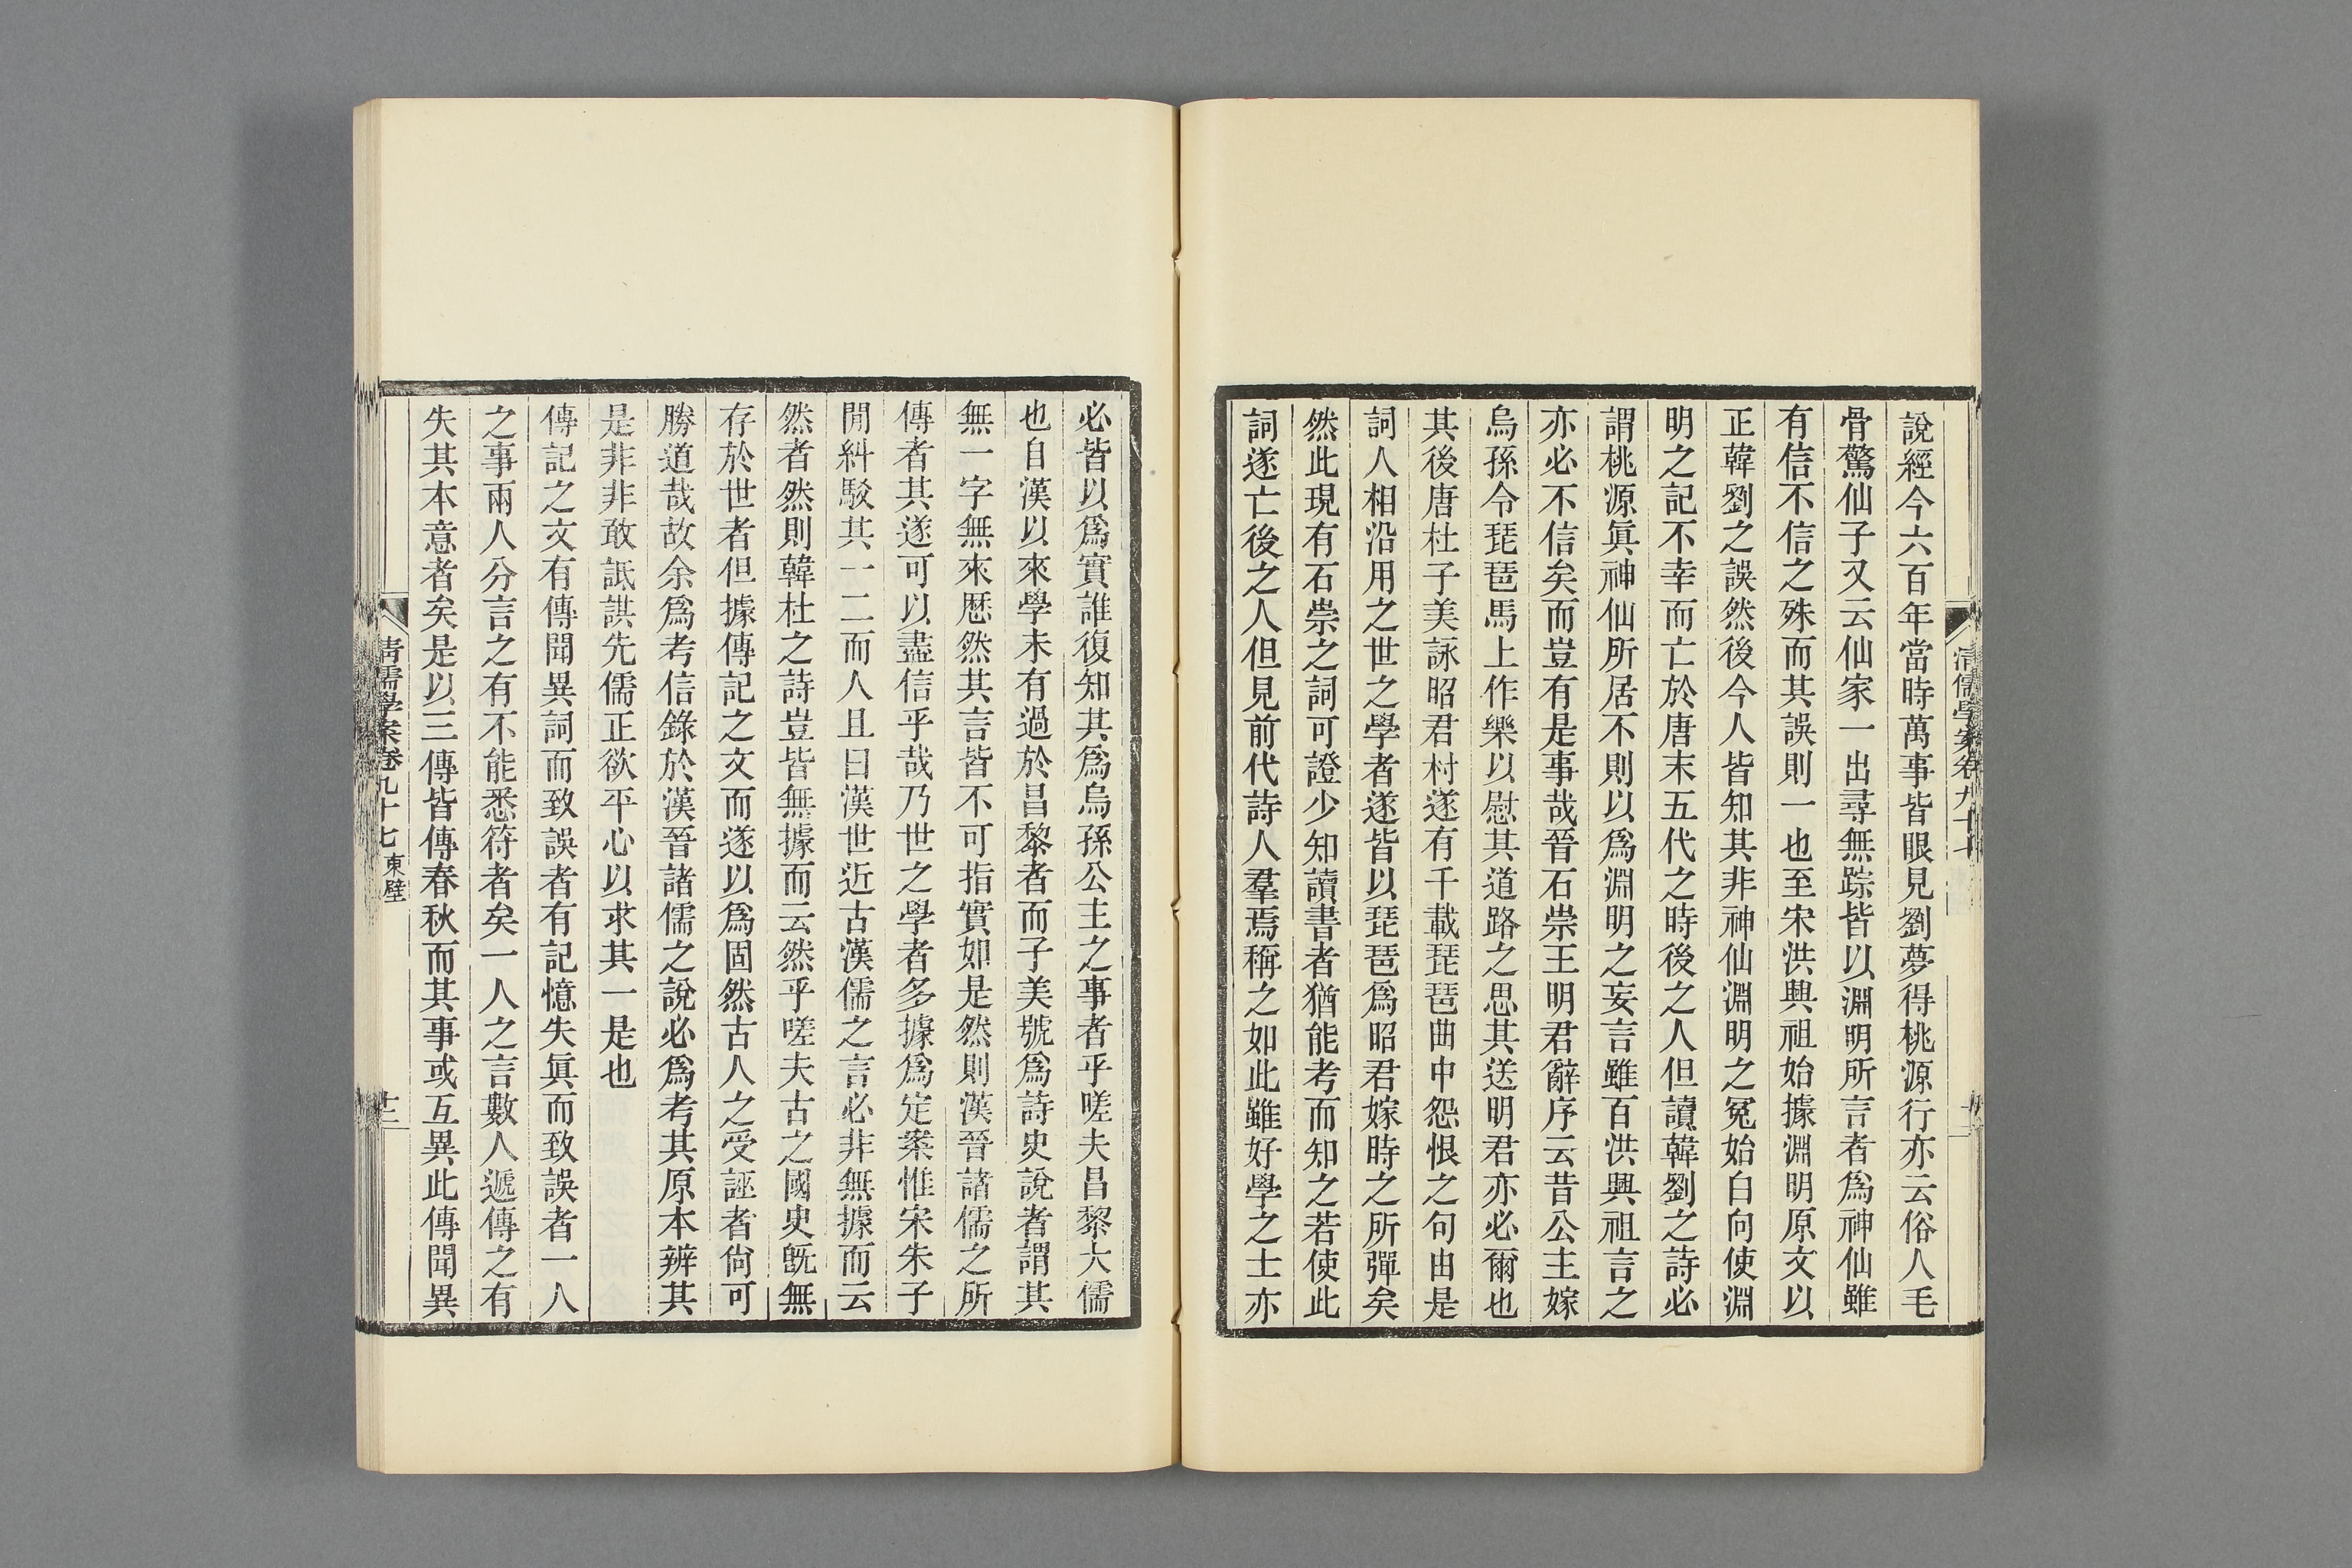 說經今六百年當時萬事皆眼見劉夢得桃源行亦云俗人毛
骨驚仙子又云仙家一出尋無踪皆以淵明所言者爲神仙雖
有信不信之殊而其誤則一也至宋洪興祖始據淵明原文以
正韓劉之誤然後今人皆知其非神仙淵明之冤始白向使淵
明之記不幸而亡於唐末五代之時後之人但讀韓劉之詩必
謂桃源眞神仙所居不則以爲淵明之妄言雖百洪興祖言之
亦必不信矣而豈有是事哉晉石崇王明君辭序云昔公主嫁
烏孫令琵琶馬上作樂以慰其道路之思其送明君亦必爾也
其後唐杜子美詠昭君村遂有千載琵琶曲中怨恨之句由是
詞人相沿用之世之學者遂皆以琵琶爲昭君嫁時之所彈矣
然此現有石崇之詞可證少知讀書者猶能考而知之若使此
詞遂亡後之人但見前代詩人羣焉稱之如此雖好學之士亦
必皆以爲實誰復知其爲烏孫公主之事者乎嗟夫昌黎大儒
也自漢以來學未有過於昌黎者而子美號爲詩史說者謂其
無一字無來歷然其言皆不可指實如是然則漢晉諸儒之所
傳者其遂可以盡信乎哉乃世之學者多據爲定案惟宋朱子
閒糾駁其一二而人且曰漢世近古漢儒之言必非無據而云
然者然則韓杜之詩豈皆無據而云然乎嗟夫古之國史旣無
存於世者但據傳記之文而遂以爲固然古人之受誣者尙可
勝道哉故余爲考信錄於漢晉諸儒之說必爲考其原本辨其
是非非敢詆諆先儒正欲平心以求其一是也
傳記之文有傳聞異詞而致誤者有記憶失眞而致誤者一人
之事兩人分言之有不能悉符者矣一人之言數人遞傳之有
失其本意者矣是以三傳皆傳春秋而其事或互異此傳聞異
清儒學案卷九十七 東壁